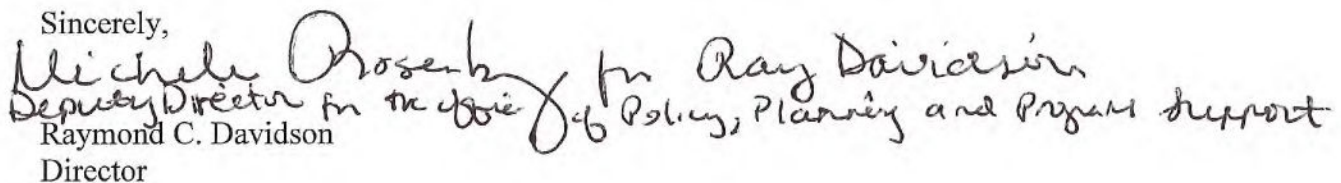 Sincerely,
Michele Rosenberg for Ray Davidson
Deputy Director for the office of Policy, Planning and Program Support
Raymond C. Davidson
Director